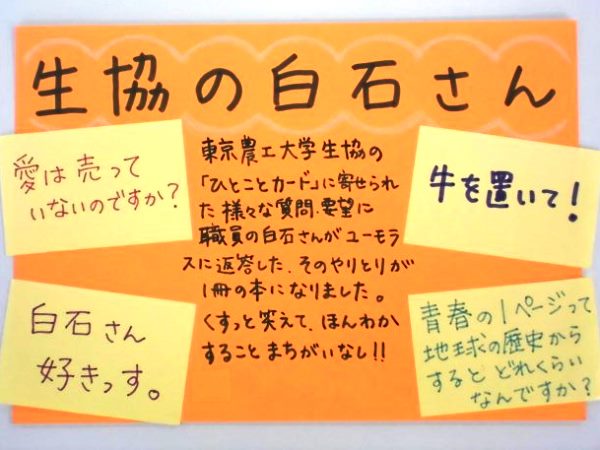 生協の白石さん
愛は売って
いないのですか?
東京農工大学生協の
「ひとことカード」に寄せられ
た様々な質問、要望に
職員の白石さんがユーモラ
スに返答した、そのやりとりが
1冊の本になりました。
くすっと笑えて、ほんわか
することまちがいなし!!
牛を置いて!
白石さん
好きっす。
青春の1ページって
地球の歴史から
すると どれくらい
なんですか?